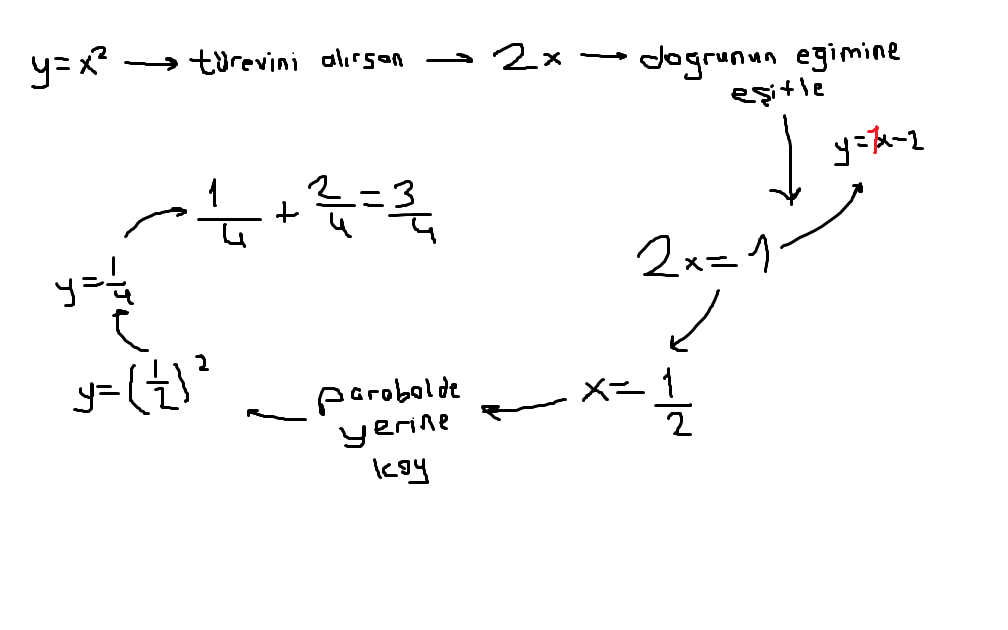 y=x² → türevini alırsan → 2x → dogrunun egimine
eşitle
y=1x-1
2x=1
x=1/2
parabolde
yerine
koy
y=(1/2)²
y=1/4
1/4 + 2/4 = 3/4